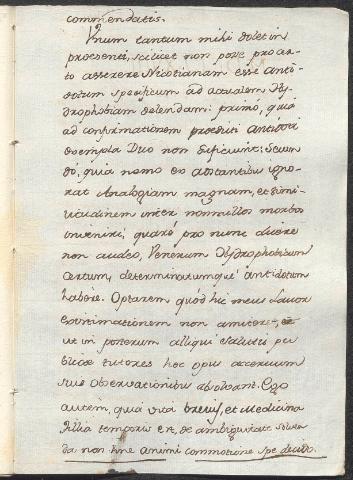 commendatis.
Unum tantum mihi dolet in
præsenti, scilicet non posse pro cer-
to asserere Nicotianam esse anti-
dotum specificum ad actualem Hy-
drophobiam delendam: primó, quia
ad confirmationem prædicti antidoti
exempla Duo non sufficiunt: secun
dó, quia nemo ex adstantibus igno-
rat Analogiam magnam, et simi-
litudinem inter nonnullos morbos
inveniri, quaré pro nunc dicere
non audeo, Venenum Hydrophobicum
Certum, determinatumque antidotum
habére. Optarem quód hic meus Labor
existimationem non amitteret,
ut in posterum alliqui salutis pu
blicæ tutores hoc opus
suis observationibus absolvant. Ego
autem, quia vita brevis, et Medicina
fillia temporis est, de ambiguitate
da non sine animi commotione spe decido.